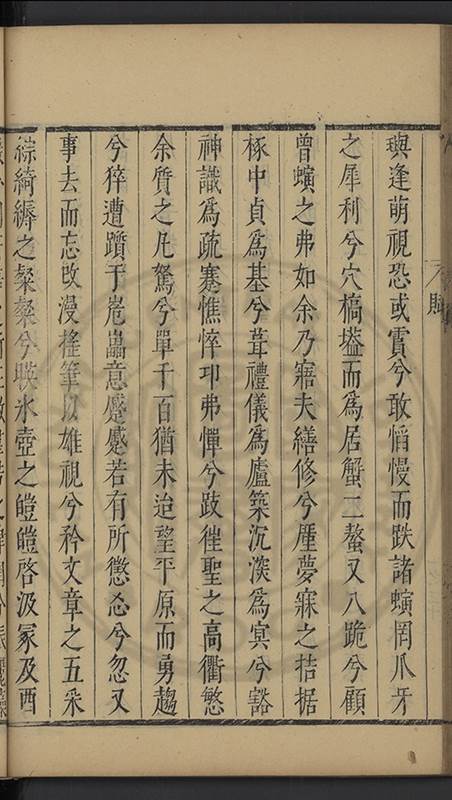 賦
璵逢萌視恐或霣兮敢慆慢而跌諸螾罔爪牙
之犀利兮穴槁壒而為居蟹二螯又八跪兮顧
曾螾之弗如余乃寤夫繕修兮厪夢寐之拮据
椓中貞為基兮葺禮儀為廬築沉深為㝠兮豁
神識為疏蹇憔悴卭弗憚兮跂徃聖之高衢慙
余質之凡駑兮單千百猶未迨望平原而勇趨
兮猝遭躓于嵬畾意蹙蹙若有所懲忿兮忽又
事去而忘攺漫搖筆以雄視兮矜文章之五采
綜綺縟之粲粲兮暎氷壺之皚皚啓汲冢及酉